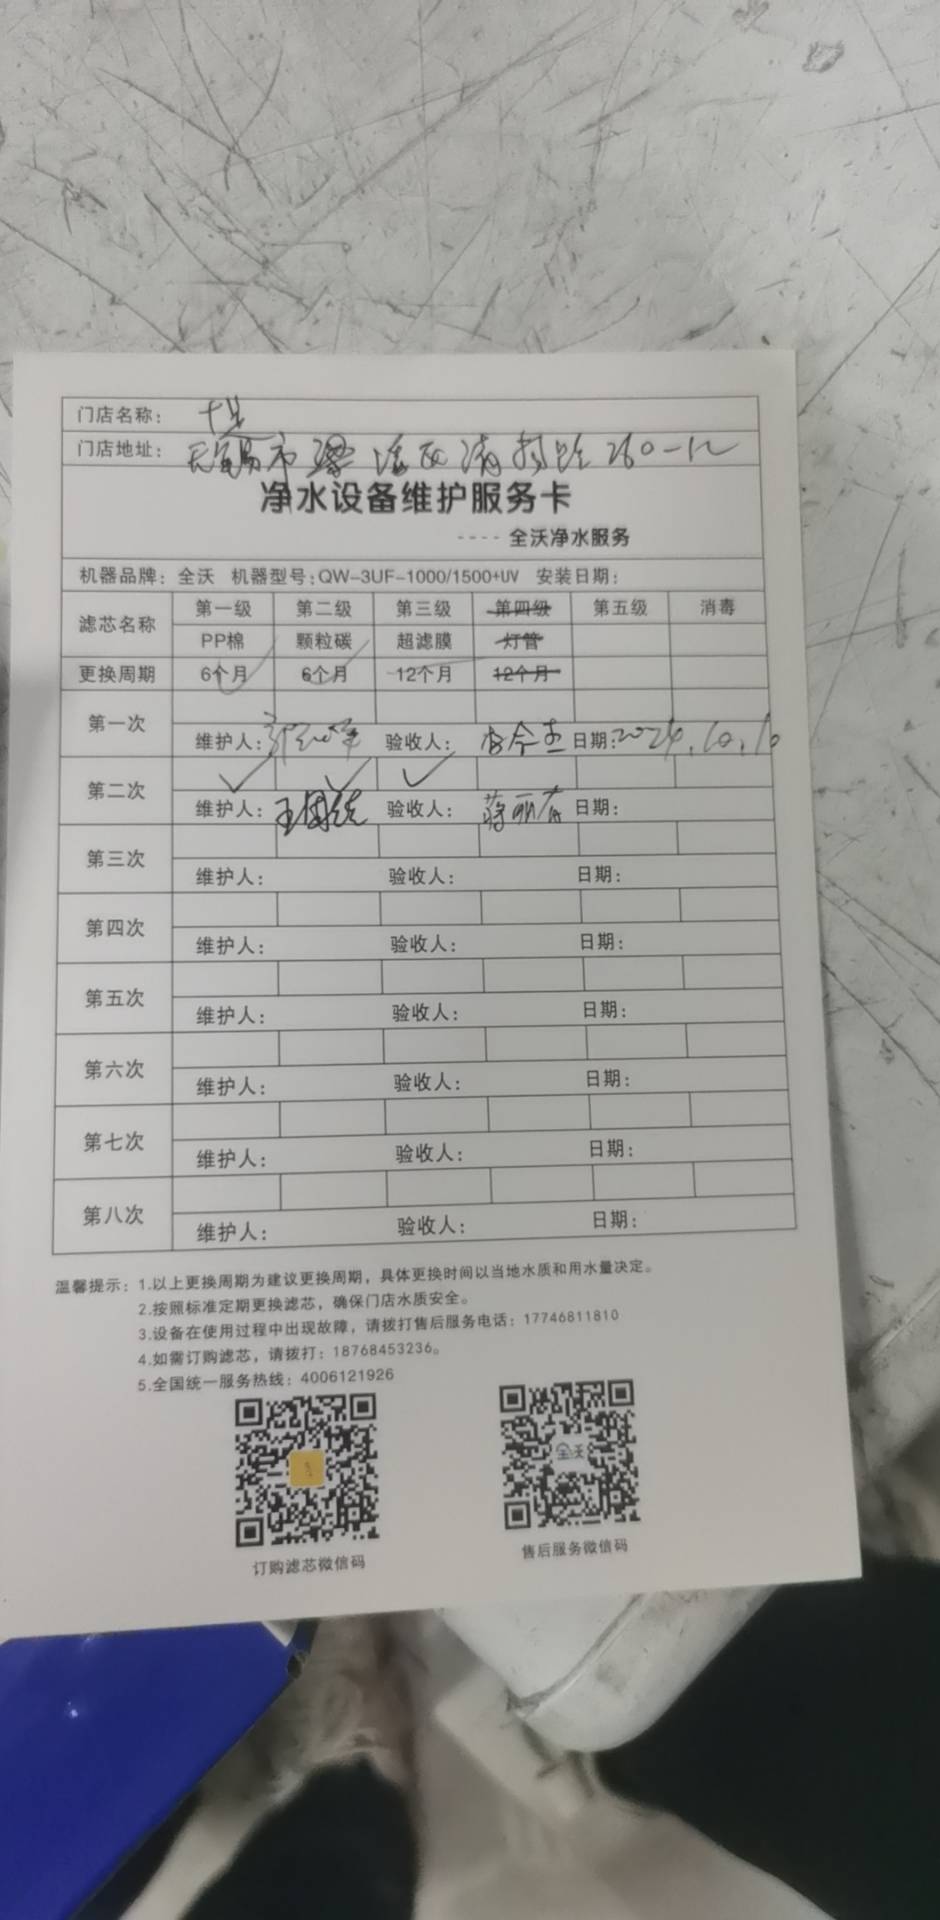 门店名称：
门店地址：无锡市梁溪区清扬路260-12
净水设备维护服务卡
---- 全沃净水服务
机器品牌：全沃 机器型号：QW-3UF-1000/1500+UV 安装日期：
滤芯名称 第一级 第二级 第三级 第四级 第五级 消毒
PP棉 颗粒碳 超滤膜 灯管
更换周期 6个月 6个月 12个月 12个月
第一次
维护人： 验收人： 日期：2024.10.10
第二次 ✓ ✓ ✓
维护人：王 验收人：蒋丽 日期：
第三次
维护人： 验收人： 日期：
第四次
维护人： 验收人： 日期：
第五次
维护人： 验收人： 日期：
第六次
维护人： 验收人： 日期：
第七次
维护人： 验收人： 日期：
第八次
维护人： 验收人： 日期：
温馨提示：1.以上更换周期为建议更换周期，具体更换时间以当地水质和用水量决定。
2.按照标准定期更换滤芯，确保门店水质安全。
3.设备在使用过程中出现故障，请拨打售后服务电话：17746811810
4.如需订购滤芯，请拨打：18768453236。
5.全国统一服务热线：4006121926
全沃
订购滤芯微信码 售后服务微信码